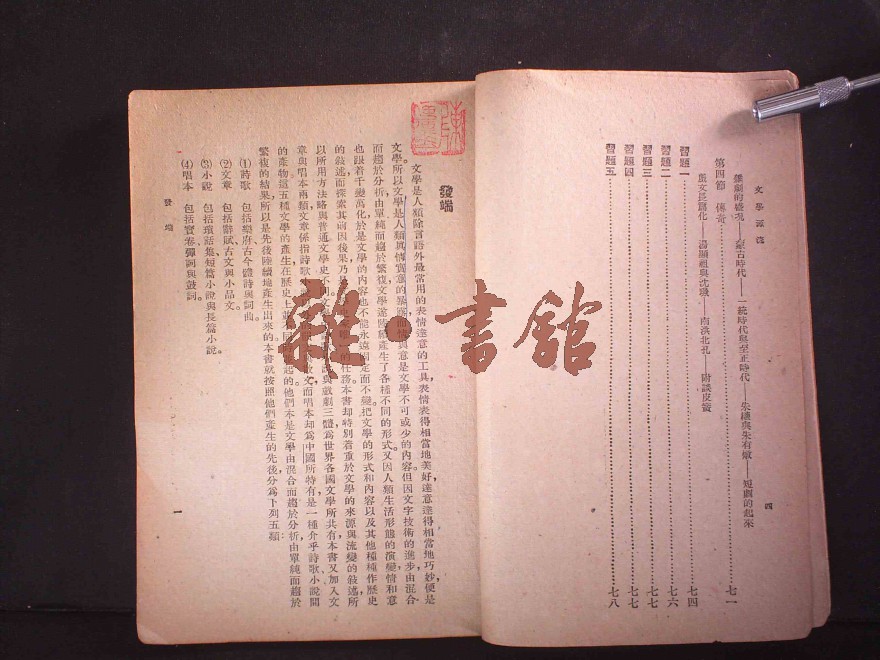 文學源流
雜劇的盛況——蒙古時代——一統時代與至正時代——朱權與朱有燉——短劇的起來
第四節 傳奇……七一
崑腔——湯顯祖與沈璟——南洪北孔——附談皮簧
習題一……七四
習題二……七六
習題三……七七
習題四……七七
習題五……七八
四
發端
文學是人類除言語外最常用的表情達意的工具，表情表得相當地美好，達意達得相當地巧妙，便是
文學。所以文學是人類與情實意的，意是文學不可或少的內容。但因文字技術的進步，由混合
而趨於分析，由單純而趨於繁複，文學遂產生了各種不同的形式。又因人類生活形態的演變，情和意
也跟着千變萬化，於是文學的內容也不能永遠固定而不變。把文學的形式和內容以及其他種種作歷史
的敘述，而探索其前因後果，乃是的任務。本書却特別着重於文學的來源與流變的敘述，所
以所用方法略與普通文學史不同。文與戲劇三體爲世界各國文學所共有，本書又加入文
章與唱本兩類。文章係指詩歌文，而唱本却爲中國所特有，是一種介乎詩歌小說間
的產物。這五種文學的產生，在歷史上並不同起的。他們本是文學由混合而趨於分析，由單純而趨於
繁複的結果，所以是先後陸續地產生出來的。本書就按照他們產生的先後，分爲下列五類：
(1)詩歌 包括樂府古今體詩與詞曲。
(2)文章 包括辭賦古文與小品文。
(3)小說 包括瑣話集短篇小說與長篇小說。
(4)唱本 包括寶卷彈詞與鼓詞。
發端
一
雜·書館